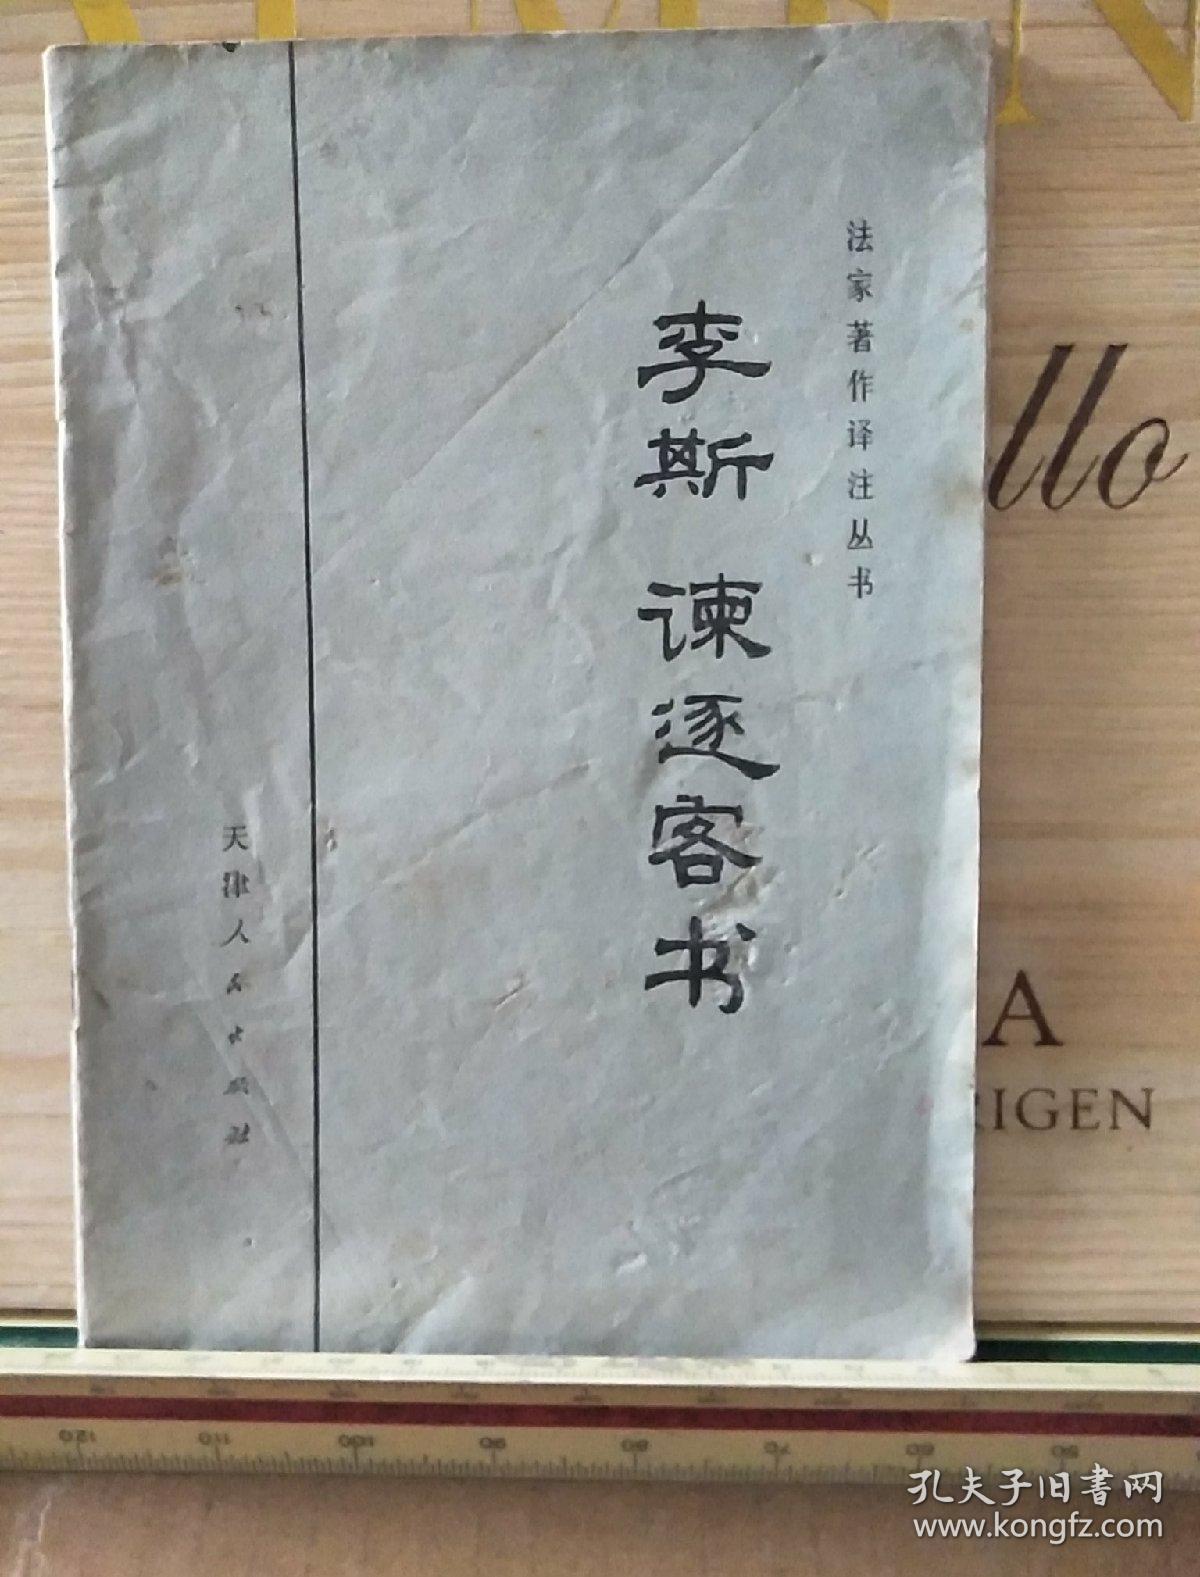 法家著作译注丛书
李斯 谏逐客书
天津人民出版社
MEN
llo
A
RIGEN
120 110 100 90 80 70 60 50
孔夫子旧書网
www.kongfz.com